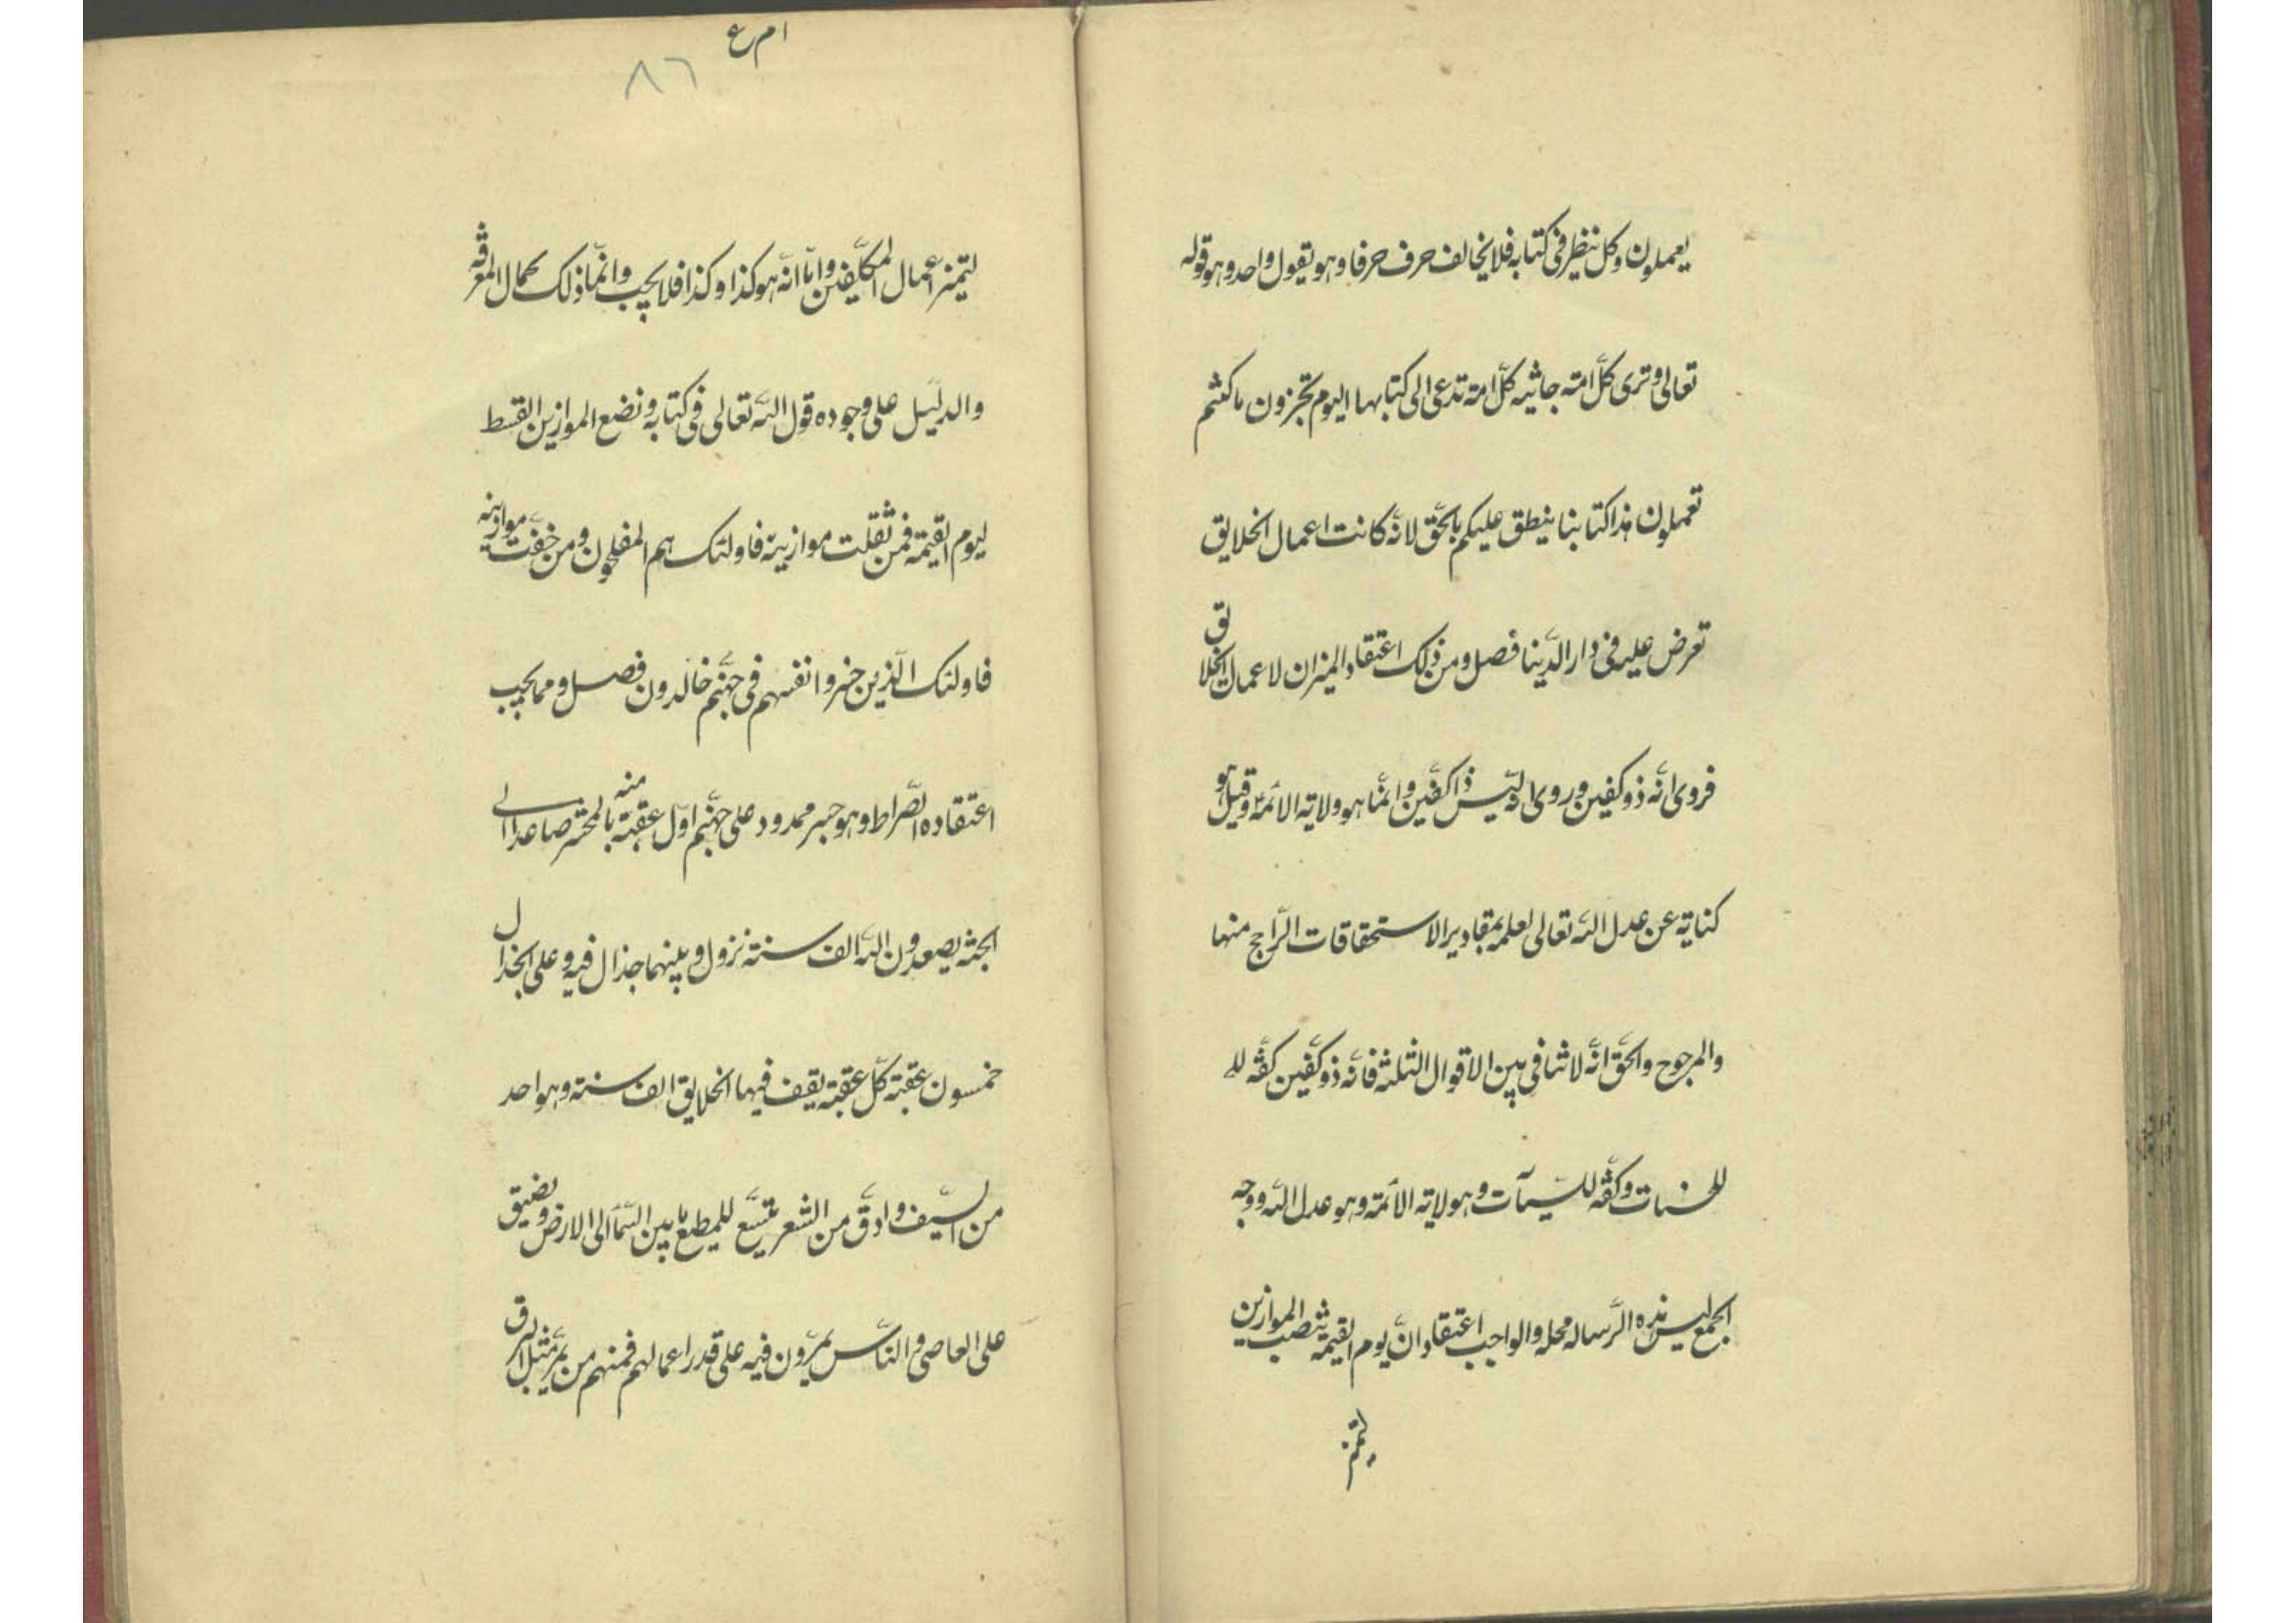 يعملون وكل ينظر فى كتابه فلا يخالف حرف حرفا وهو يقول واحد وهو قوله
تعالى وترى كلّ امة جاثية كلّ امة تدعى الى كتابها اليوم تجزون ما كنتم
تعملون هذا كتابنا ينطق عليكم بالحقّ لانّه كانت اعمال الخلايق
تعرض عليه فى دار الدّنيا فصل ومن ذلك اعتقاد الميزان لاعمال الخلايق
فروى انّه ذو كفين وروى انّه ليس ذا كفّين وانّما هو ولاية الائمّة وقيل هو
كناية عن عدل اللّه تعالى لعلمه بمقادير الاستحقاقات الرّاجح منها
والمرجوح والحقّ انّه لا تنافى بين الاقوال الثلثة فانّه ذو كفّين كفّة لل
للحسنات وكفّة للسّيآت وهو ولاية الائمة وهو عدل اللّه ووجه
الجمع ليس هذه الرّسالة محله والواجب اعتقاد انّ يوم القيمة تنصب الموازين
ليتميز
ام ع
٨٦
لتميز اعمال المكلّفين وامّا انّه هو كذا وكذا فلا يجب وانّما ذلك كمال المعرفة
والدليّل على وجوده قول اللّه تعالى فى كتابه ونضع الموازين القسط
ليوم القيمة فمن ثقلت موازينه فاولئك هم المفلحون ومن خفّت موازينه
فاولئك الّذين خسروا انفسهم فى جهنّم خالدون فصل ومما يجب
اعتقاده الصّراط وهو جسر ممدود على جهنّم اوّل عقبة منه بالمحشر صاعدا الى
الجنّة يصعدون اللّه الف سنة نزول وبينهما حذال فيه وعلى الحذال
خمسون عقبة كلّ عقبة يقف فيها الخلايق الف سنة وهو احد
من السّيف وادقّ من الشعر يتسّع للمطيع ما بين السّماء الى الارض ويضيق
على العاصى والنّاس يمرّون فيه على قدر اعمالهم فمنهم من يمرّ مثل البرق